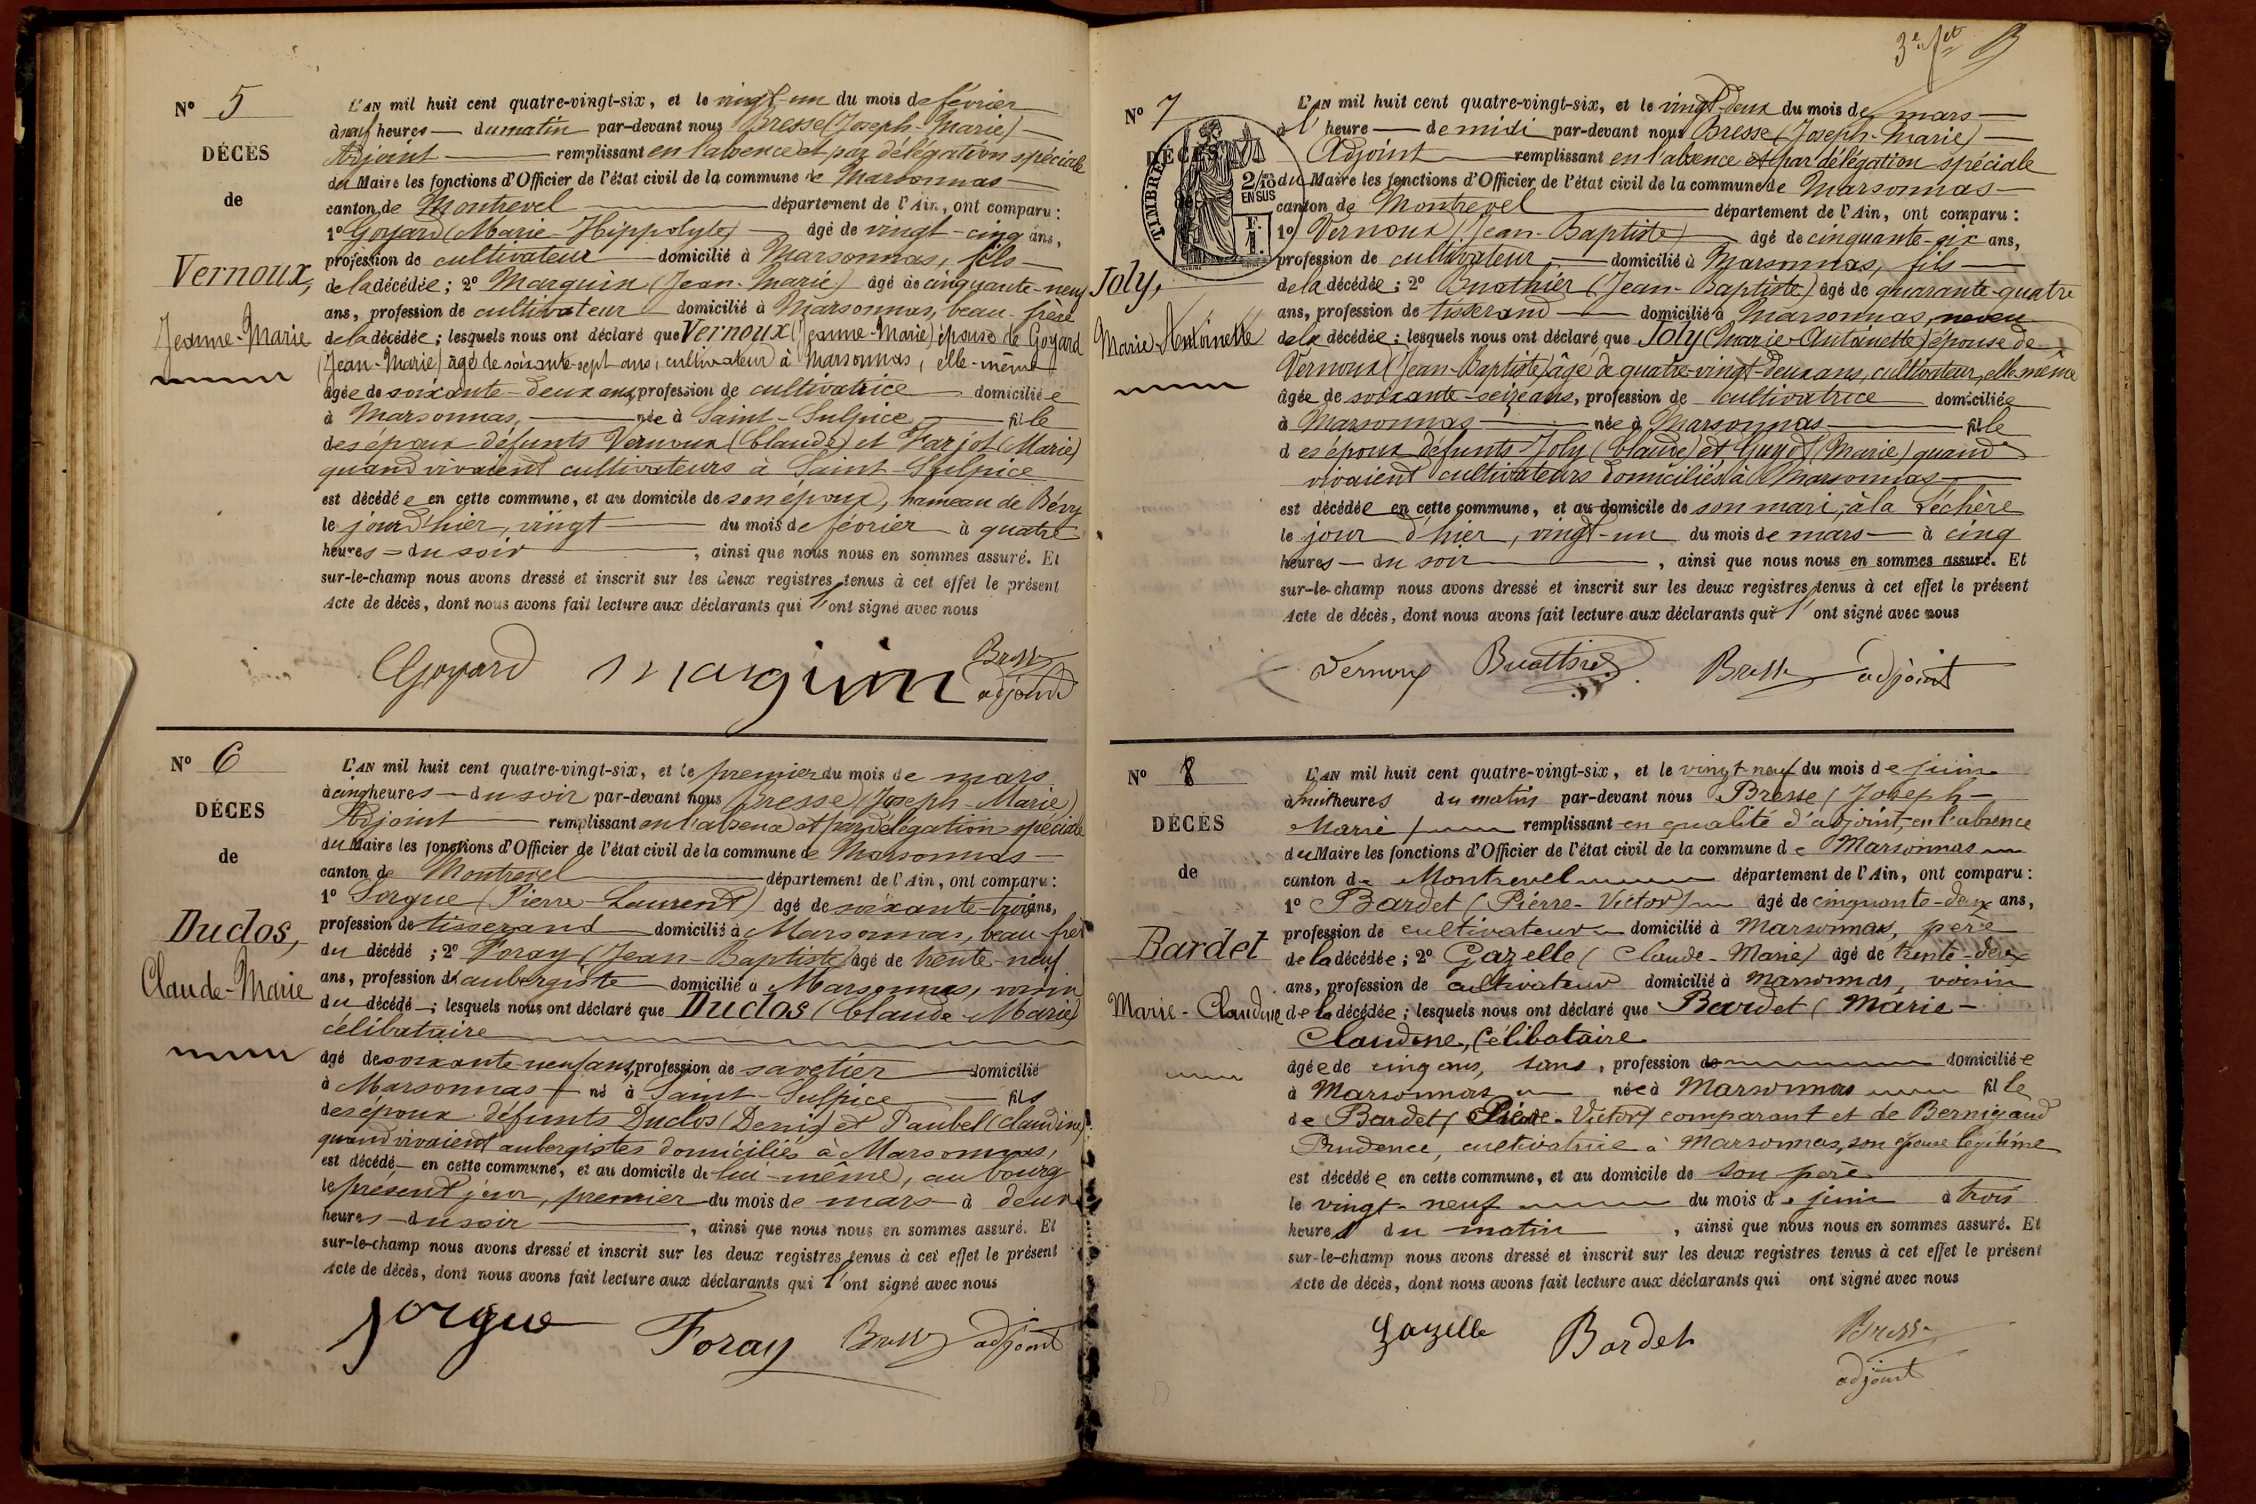 N° 5
DÉCÈS
de
Vernoux,
Jeanne-Marie
L'AN mil huit cent quatre-vingt-six, et le vingt-un du mois de février
à neuf heures du matin par-devant nous Bresse (Joseph-Marie)
Adjoint remplissant en l'absence et par délégation spéciale
du Maire les fonctions d'Officier de l'état civil de la commune de Marsonnas
canton de Montrevel département de l'Ain, ont comparu :
1° Goyard (Marie-Hippolyte) âgé de vingt-cinq ans,
profession de cultivateur domicilié à Marsonnas, fils
de la décédée ; 2° Marguin (Jean-Marie) âgé de cinquante-neuf
ans, profession de cultivateur domicilié à Marsonnas, beau-frère
de la décédée ; lesquels nous ont déclaré que Vernoux (Jeanne-Marie) épouse de Goyard
(Jean-Marie) âgé de soixante-sept ans, cultivateur à Marsonnas, elle-même
âgée de soixante-deux ans, profession de cultivatrice domiciliée
à Marsonnas, née à Saint-Sulpice fille
des époux défunts Vernoux (Claude) et Farjot (Marie)
quand vivaient cultivateurs à Saint-Sulpice
est décédée en cette commune, et au domicile de son époux, hameau de Bévy
le jour d'hier, vingt du mois de février à quatre
heures du soir, ainsi que nous nous en sommes assuré. Et
sur-le-champ nous avons dressé et inscrit sur les deux registres tenus à cet effet le présent
Acte de décès, dont nous avons fait lecture aux déclarants qui l'ont signé avec nous
Goyard Marguin Bresse
adjoint
N° 6
DÉCÈS
de
Duclos,
Claude-Marie
L'AN mil huit cent quatre-vingt-six, et le premier du mois de mars
à cinq heures du soir par-devant nous Bresse (Joseph-Marie)
Adjoint remplissant en l'absence et par délégation spéciale
du Maire les fonctions d'Officier de l'état civil de la commune de Marsonnas
canton de Montrevel département de l'Ain, ont comparu :
1° Sorgue (Pierre-Laurent) âgé de soixante-trois ans,
profession de tisserand domicilié à Marsonnas, beau-frère
du décédé ; 2° Foray (Jean-Baptiste) âgé de trente-neuf
ans, profession d'aubergiste domicilié à Marsonnas, voisin
du décédé ; lesquels nous ont déclaré que Duclos (Claude-Marie)
célibataire
âgé de soixante neuf ans, profession de savetier domicilié
à Marsonnas né à Saint-Sulpice fils
des époux défunts Duclos (Denis) et Paubel (Claudine)
quand vivaient aubergistes domiciliés à Marsonnas,
est décédé en cette commune, et au domicile de lui-même, au bourg
le présent jour, premier du mois de mars à deux
heures du soir, ainsi que nous nous en sommes assuré. Et
sur-le-champ nous avons dressé et inscrit sur les deux registres tenus à cet effet le présent
Acte de décès, dont nous avons fait lecture aux déclarants qui l'ont signé avec nous
Sorgue Foray Bresse adjoint
3e
N° 7
DÉCÈS
TIMBRE
2/10 EN SUS
Joly,
Marie-Antoinette
L'AN mil huit cent quatre-vingt-six, et le vingt-deux du mois de mars
à l'heure de midi par-devant nous Bresse (Joseph-Marie)
Adjoint remplissant en l'absence et par délégation spéciale
du Maire les fonctions d'Officier de l'état civil de la commune de Marsonnas
canton de Montrevel département de l'Ain, ont comparu :
1° Vernoux (Jean-Baptiste) âgé de cinquante-six ans,
profession de cultivateur domicilié à Marsonnas, fils
de la décédée ; 2° Buathier (Jean-Baptiste) âgé de quarante-quatre
ans, profession de tisserand domicilié à Marsonnas, neveu
de la décédée ; lesquels nous ont déclaré que Joly (Marie-Antoinette) épouse de
Vernoux (Jean-Baptiste) âgé de quatre-vingt-deux ans, cultivateur, elle-même
âgée de soixante-seize ans, profession de cultivatrice domiciliée
à Marsonnas née à Marsonnas fille
des époux défunts Joly (Claude) et Guyet (Marie) quand
vivaient cultivateurs domiciliés à Marsonnas
est décédée en cette commune, et au domicile de son mari, à la Léchère
le jour d'hier, vingt-un du mois de mars à cinq
heures du soir, ainsi que nous nous en sommes assuré. Et
sur-le-champ nous avons dressé et inscrit sur les deux registres tenus à cet effet le présent
Acte de décès, dont nous avons fait lecture aux déclarants qui l'ont signé avec nous
Vernoux Buathier Bresse adjoint
N° 8
DÉCÈS
de
Bardet
Marie-Claudine
L'AN mil huit cent quatre-vingt-six, et le vingt-neuf du mois de juin
à huit heures du matin par-devant nous Bresse (Joseph-
Marie) remplissant en qualité d'adjoint, en l'absence
du Maire les fonctions d'Officier de l'état civil de la commune de Marsonnas
canton de Montrevel département de l'Ain, ont comparu :
1° Bardet (Pierre-Victor) âgé de cinquante-deux ans,
profession de cultivateur domicilié à Marsonnas, père
de la décédée ; 2° Gazelle (Claude-Marie) âgé de trente-deux
ans, profession de cultivateur domicilié à Marsonnas, voisin
de la décédée ; lesquels nous ont déclaré que Bardet (Marie-
Claudine, célibataire
âgée de cinq ans, sans, profession de domiciliée
à Marsonnas née à Marsonnas fille
de Bardet (Pierre-Victor) comparant et de Bernigaud
Prudence, cultivatrice à Marsonnas, son épouse légitime
est décédée en cette commune, et au domicile de son père
le vingt-neuf du mois de juin à trois
heures du matin, ainsi que nous nous en sommes assuré. Et
sur-le-champ nous avons dressé et inscrit sur les deux registres tenus à cet effet le présent
Acte de décès, dont nous avons fait lecture aux déclarants qui ont signé avec nous
Gazelle Bardet Bresse
adjoint